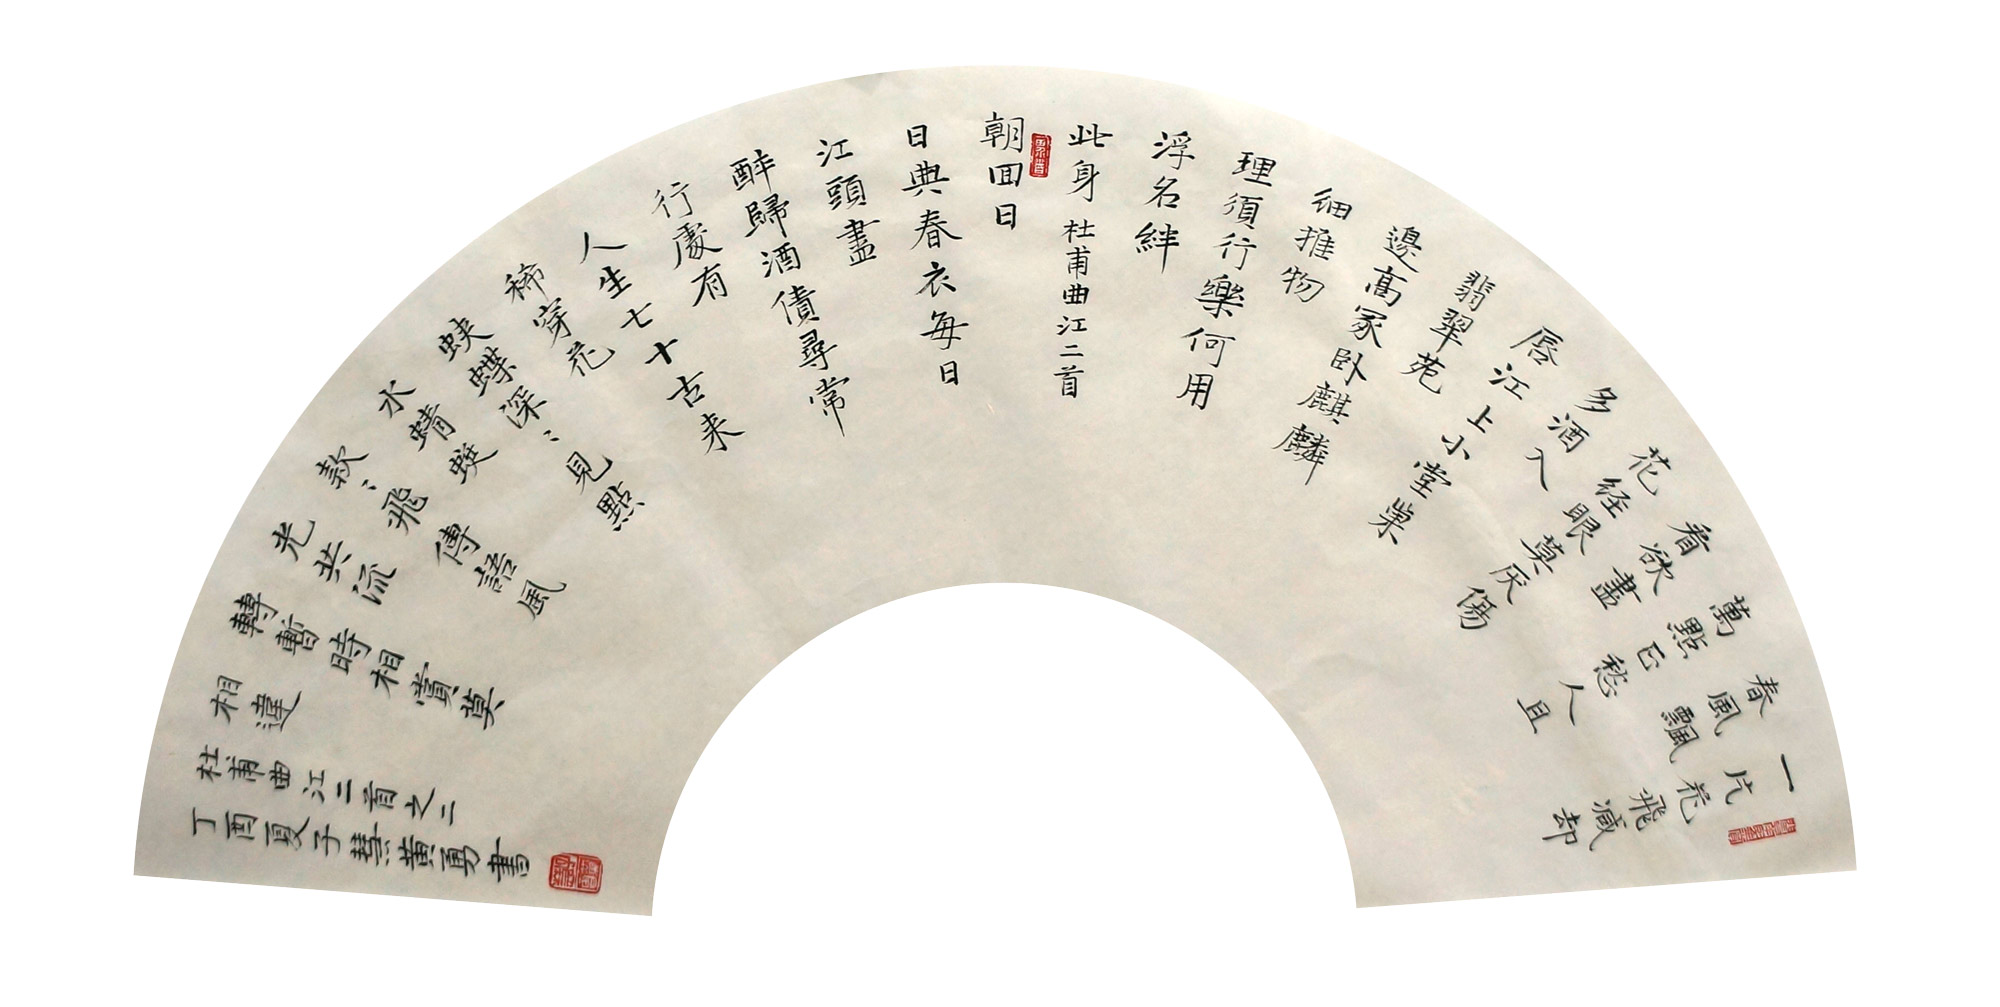 一片花飛減却
春風飄
萬點已愁人且
看欲盡
花経眼莫厌傷
多酒入
唇江上小堂巢
翡翠苑
邊高冢卧麒麟
細推物
理須行樂何用
浮名絆
此身 杜甫曲江二首
朝囬日
日典春衣每日
江頭盡
醉歸酒債尋常
行處有
人生七十古来
稀穿花
蛱蝶深〻見點
水蜻蜓
款〻飛傳語風
光共流
轉暫時相賞莫
相違
杜甫曲江二首之二
丁酉夏子慧黄勇書